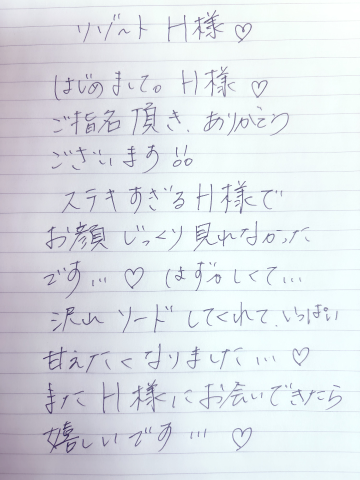 リゾート H様♡
はじめまして。H様♡
ご指名頂き、ありがとう
ございます!!
ステキすぎるH様で
お顔じっくり見れなかった
です…♡ はずかしくて…
沢山 リードしてくれて、いっぱい
甘えたくなりました…♡
またH様にお会いできたら
嬉しいです…♡